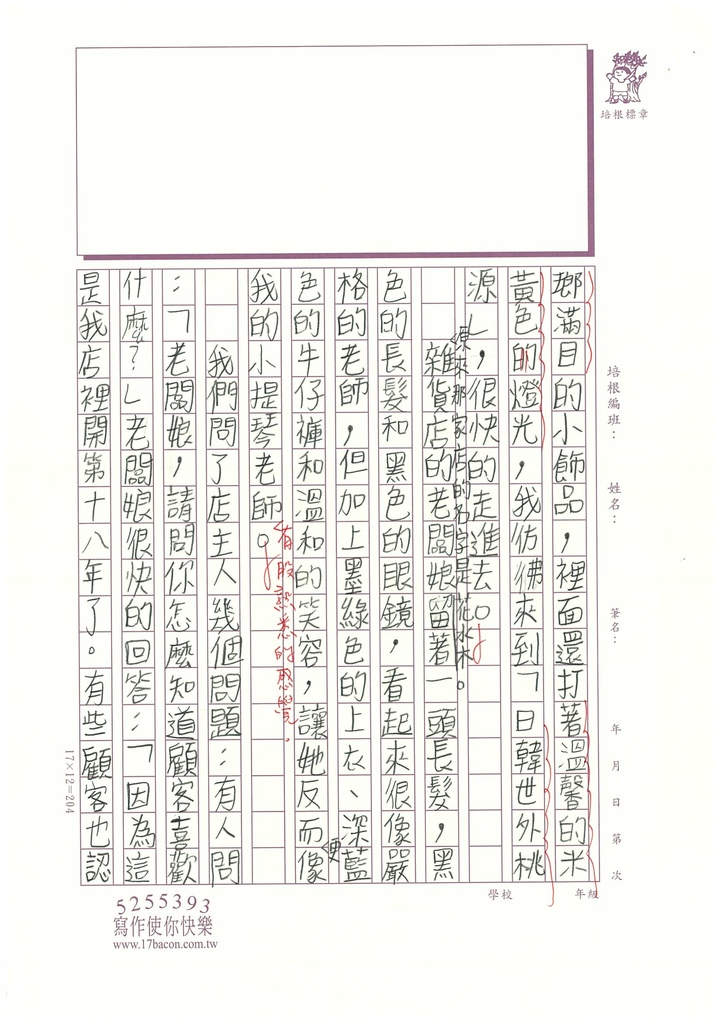 培根標章
培根編班：
姓名：
筆名：
年 月 日 第 次
學校
年級
瑯滿目的小飾品，裡面還打著溫馨的米
黃色的燈光，我仿彿來到「日韓世外桃
源」，很快的走進去。
原來那家店的名字是花水木。
雜貨店的老闆娘留著一頭長髮，黑
色的長髮和黑色的眼鏡，看起來很像嚴
格的老師，但加上墨綠色的上衣、深藍
色的牛仔褲和溫和的笑容，讓她反而更像
我的小提琴老師。
有股熟悉的感覺。
我們問了店主人幾個問題：有人問
：「老闆娘，請問你怎麼知道顧客喜歡
什麼？」老闆娘很快的回答：「因為這
是我店裡開第十八年了。有些顧客也認
17×12=204
5255393
寫作使你快樂
www.17bacon.com.tw